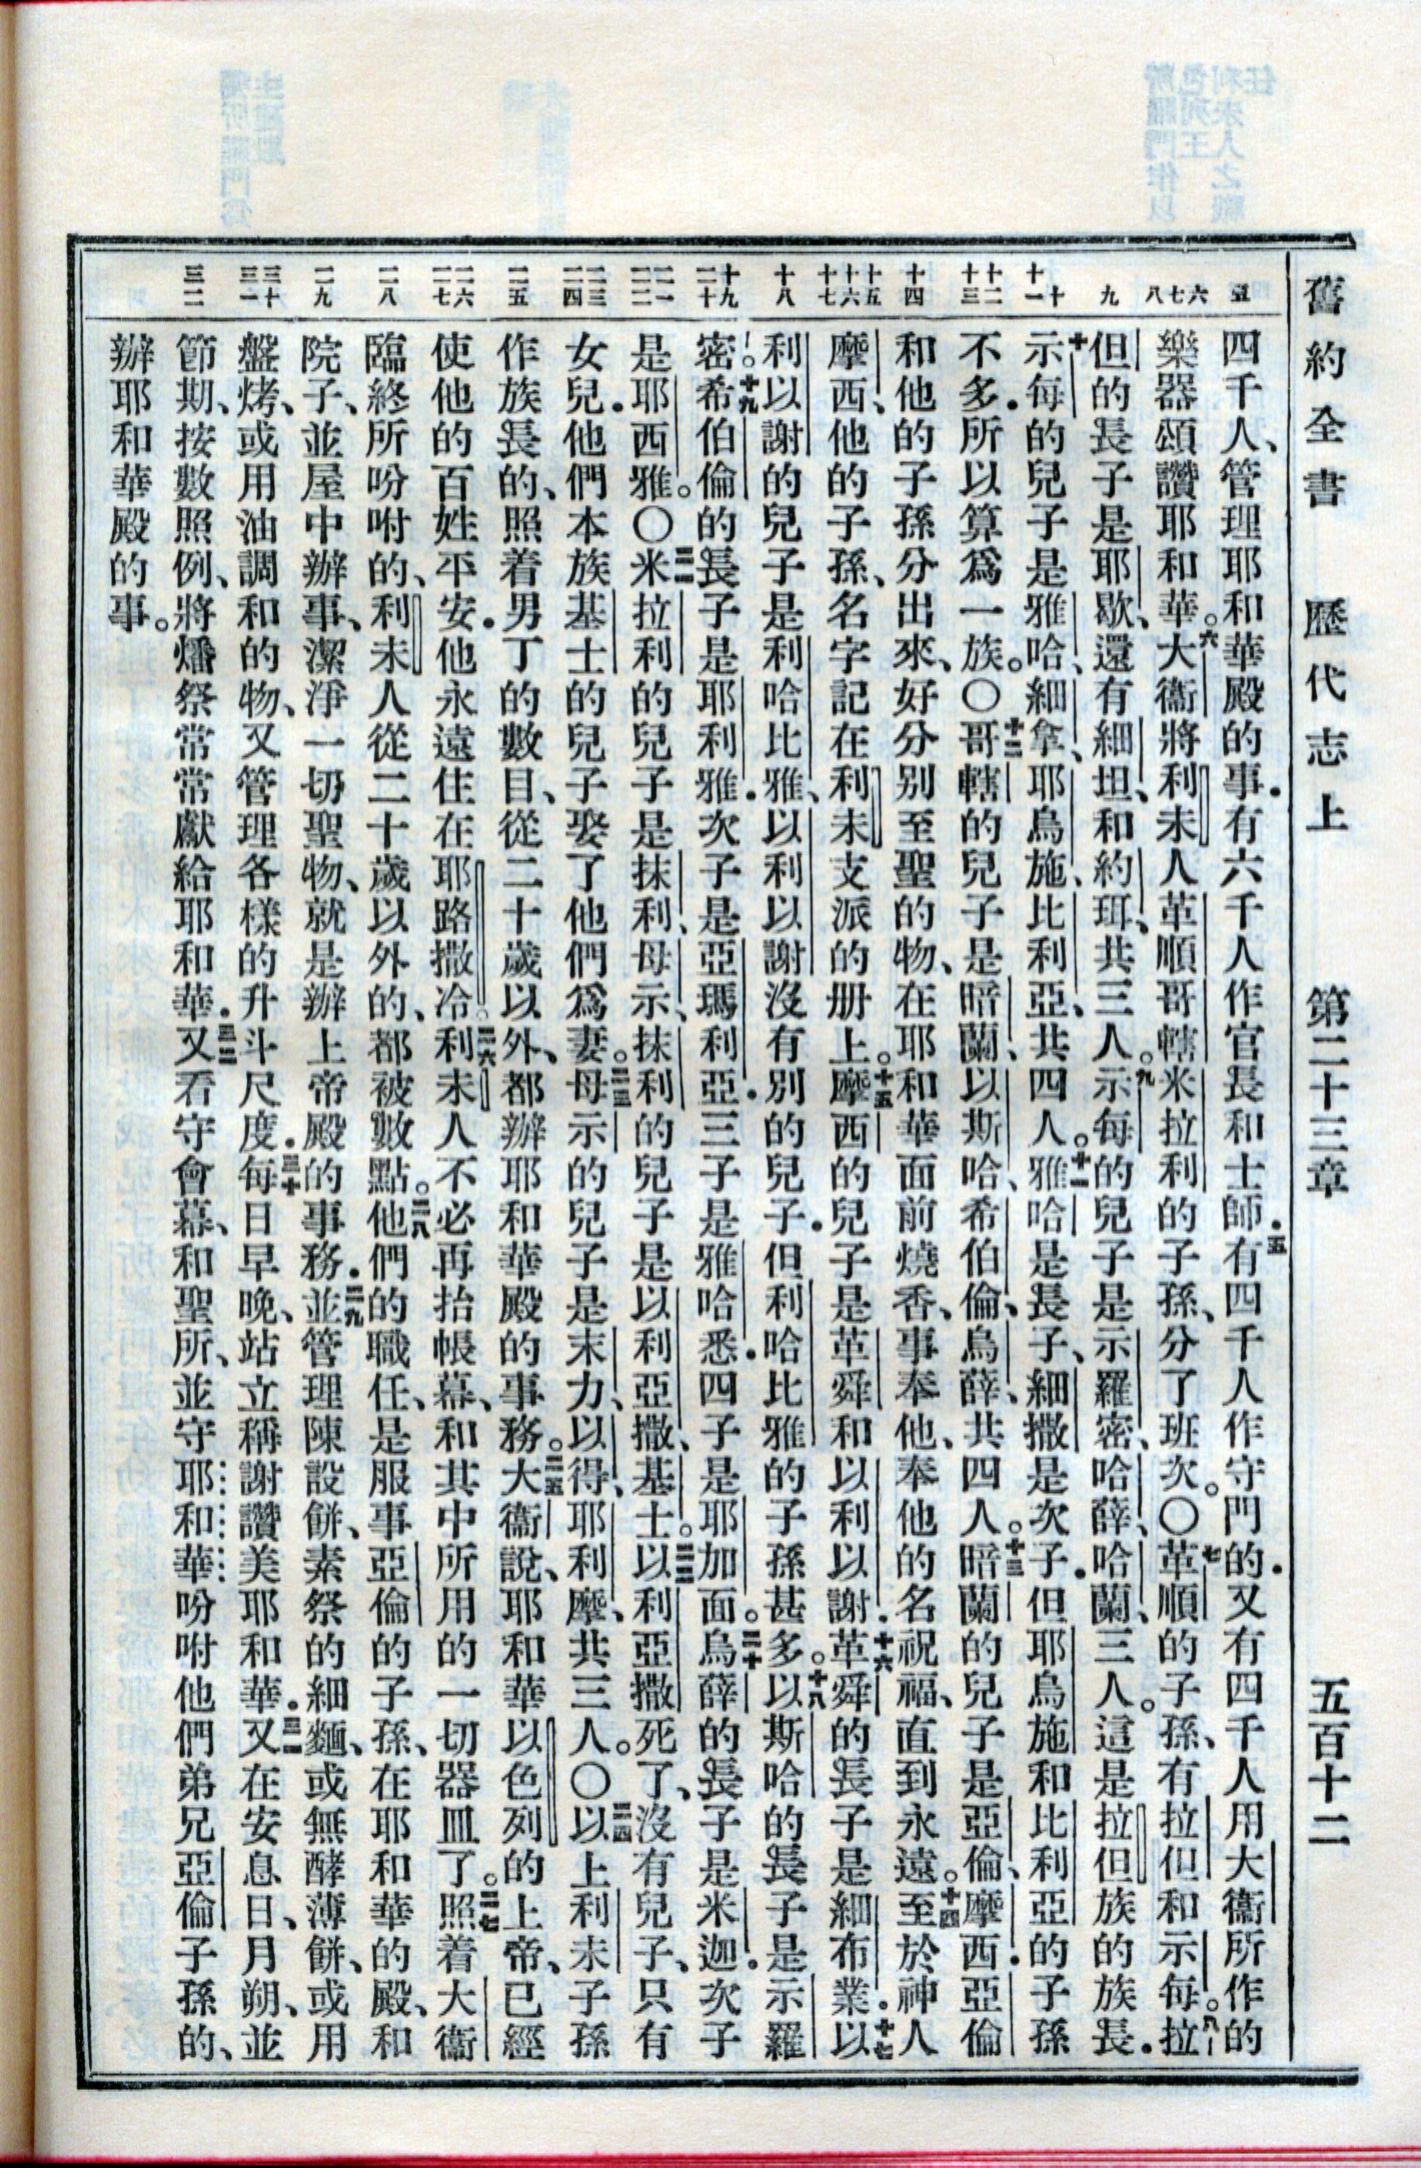 舊約全書 歷代志上 第二十三章 五百十二
五 六 七 八 九 十 十一 十二 十三 十四 十五 十六 十七 十八 十九 二十 二一 二二 二三 二四 二五 二六 二七 二八 二九 三十 三一 三二
四千人、管理耶和華殿的事．有六千人作官長和士師．五有四千人作守門的．又有四千人用大衞所作的
樂器頌讚耶和華。六大衞將利未人革順哥轄米拉利的子孫、分了班次。〇七革順的子孫、有拉但和示每。八拉
但的長子是耶歇、還有細坦、和約珥、共三人。九示每的兒子是示羅密、哈薛、哈蘭、三人。這是拉但族的族長．
十示每的兒子是雅哈、細拿、耶烏施、比利亞、共四人。十一雅哈是長子、細撒是次子．但耶烏施和比利亞的子孫
不多．所以算爲一族。〇十二哥轄的兒子是暗蘭、以斯哈、希伯倫、烏薛、共四人。十三暗蘭的兒子是亞倫、摩西．亞倫
和他的子孫分出來、好分別至聖的物、在耶和華面前燒香、事奉他、奉他的名祝福、直到永遠。十四至於神人
摩西、他的子孫、名字記在利未支派的册上。十五摩西的兒子是革舜和以利以謝．十六革舜的長子是細布業．十七以
利以謝的兒子是利哈比雅、以利以謝沒有別的兒子．但利哈比雅的子孫甚多。十八以斯哈的長子是示羅
密。十九希伯倫的長子是耶利雅．次子是亞瑪利亞．三子是雅哈悉．四子是耶加面。二十烏薛的長子是米迦．次子
是耶西雅。〇二一米拉利的兒子是抹利、母示、抹利的兒子是以利亞撒、基士。二二以利亞撒死了、沒有兒子、只有
女兒．他們本族基士的兒子娶了他們爲妻。二三母示的兒子是末力、以得、耶利摩、共三人。〇二四以上利未子孫
作族長的、照着男丁的數目、從二十歲以外、都辦耶和華殿的事務。二五大衞說、耶和華以色列的上帝、已經
使他的百姓平安．他永遠住在耶路撒冷。二六利未人不必再抬帳幕、和其中所用的一切器皿了。二七照着大衞
臨終所吩咐的、利未人從二十歲以外的、都被數點。二八他們的職任、是服事亞倫的子孫、在耶和華的殿、和
院子、並屋中辦事、潔淨一切聖物、就是辦上帝殿的事務．二九並管理陳設餅、素祭的細麵、或無酵薄餅、或用
盤烤、或用油調和的物、又管理各樣的升斗尺度．三十每日早晚、站立稱謝讚美耶和華．三一又在安息日、月朔、並
節期、按數照例、將燔祭常常獻給耶和華．三二又看守會幕、和聖所、並守耶和華吩咐他們弟兄亞倫子孫的、
辦耶和華殿的事。